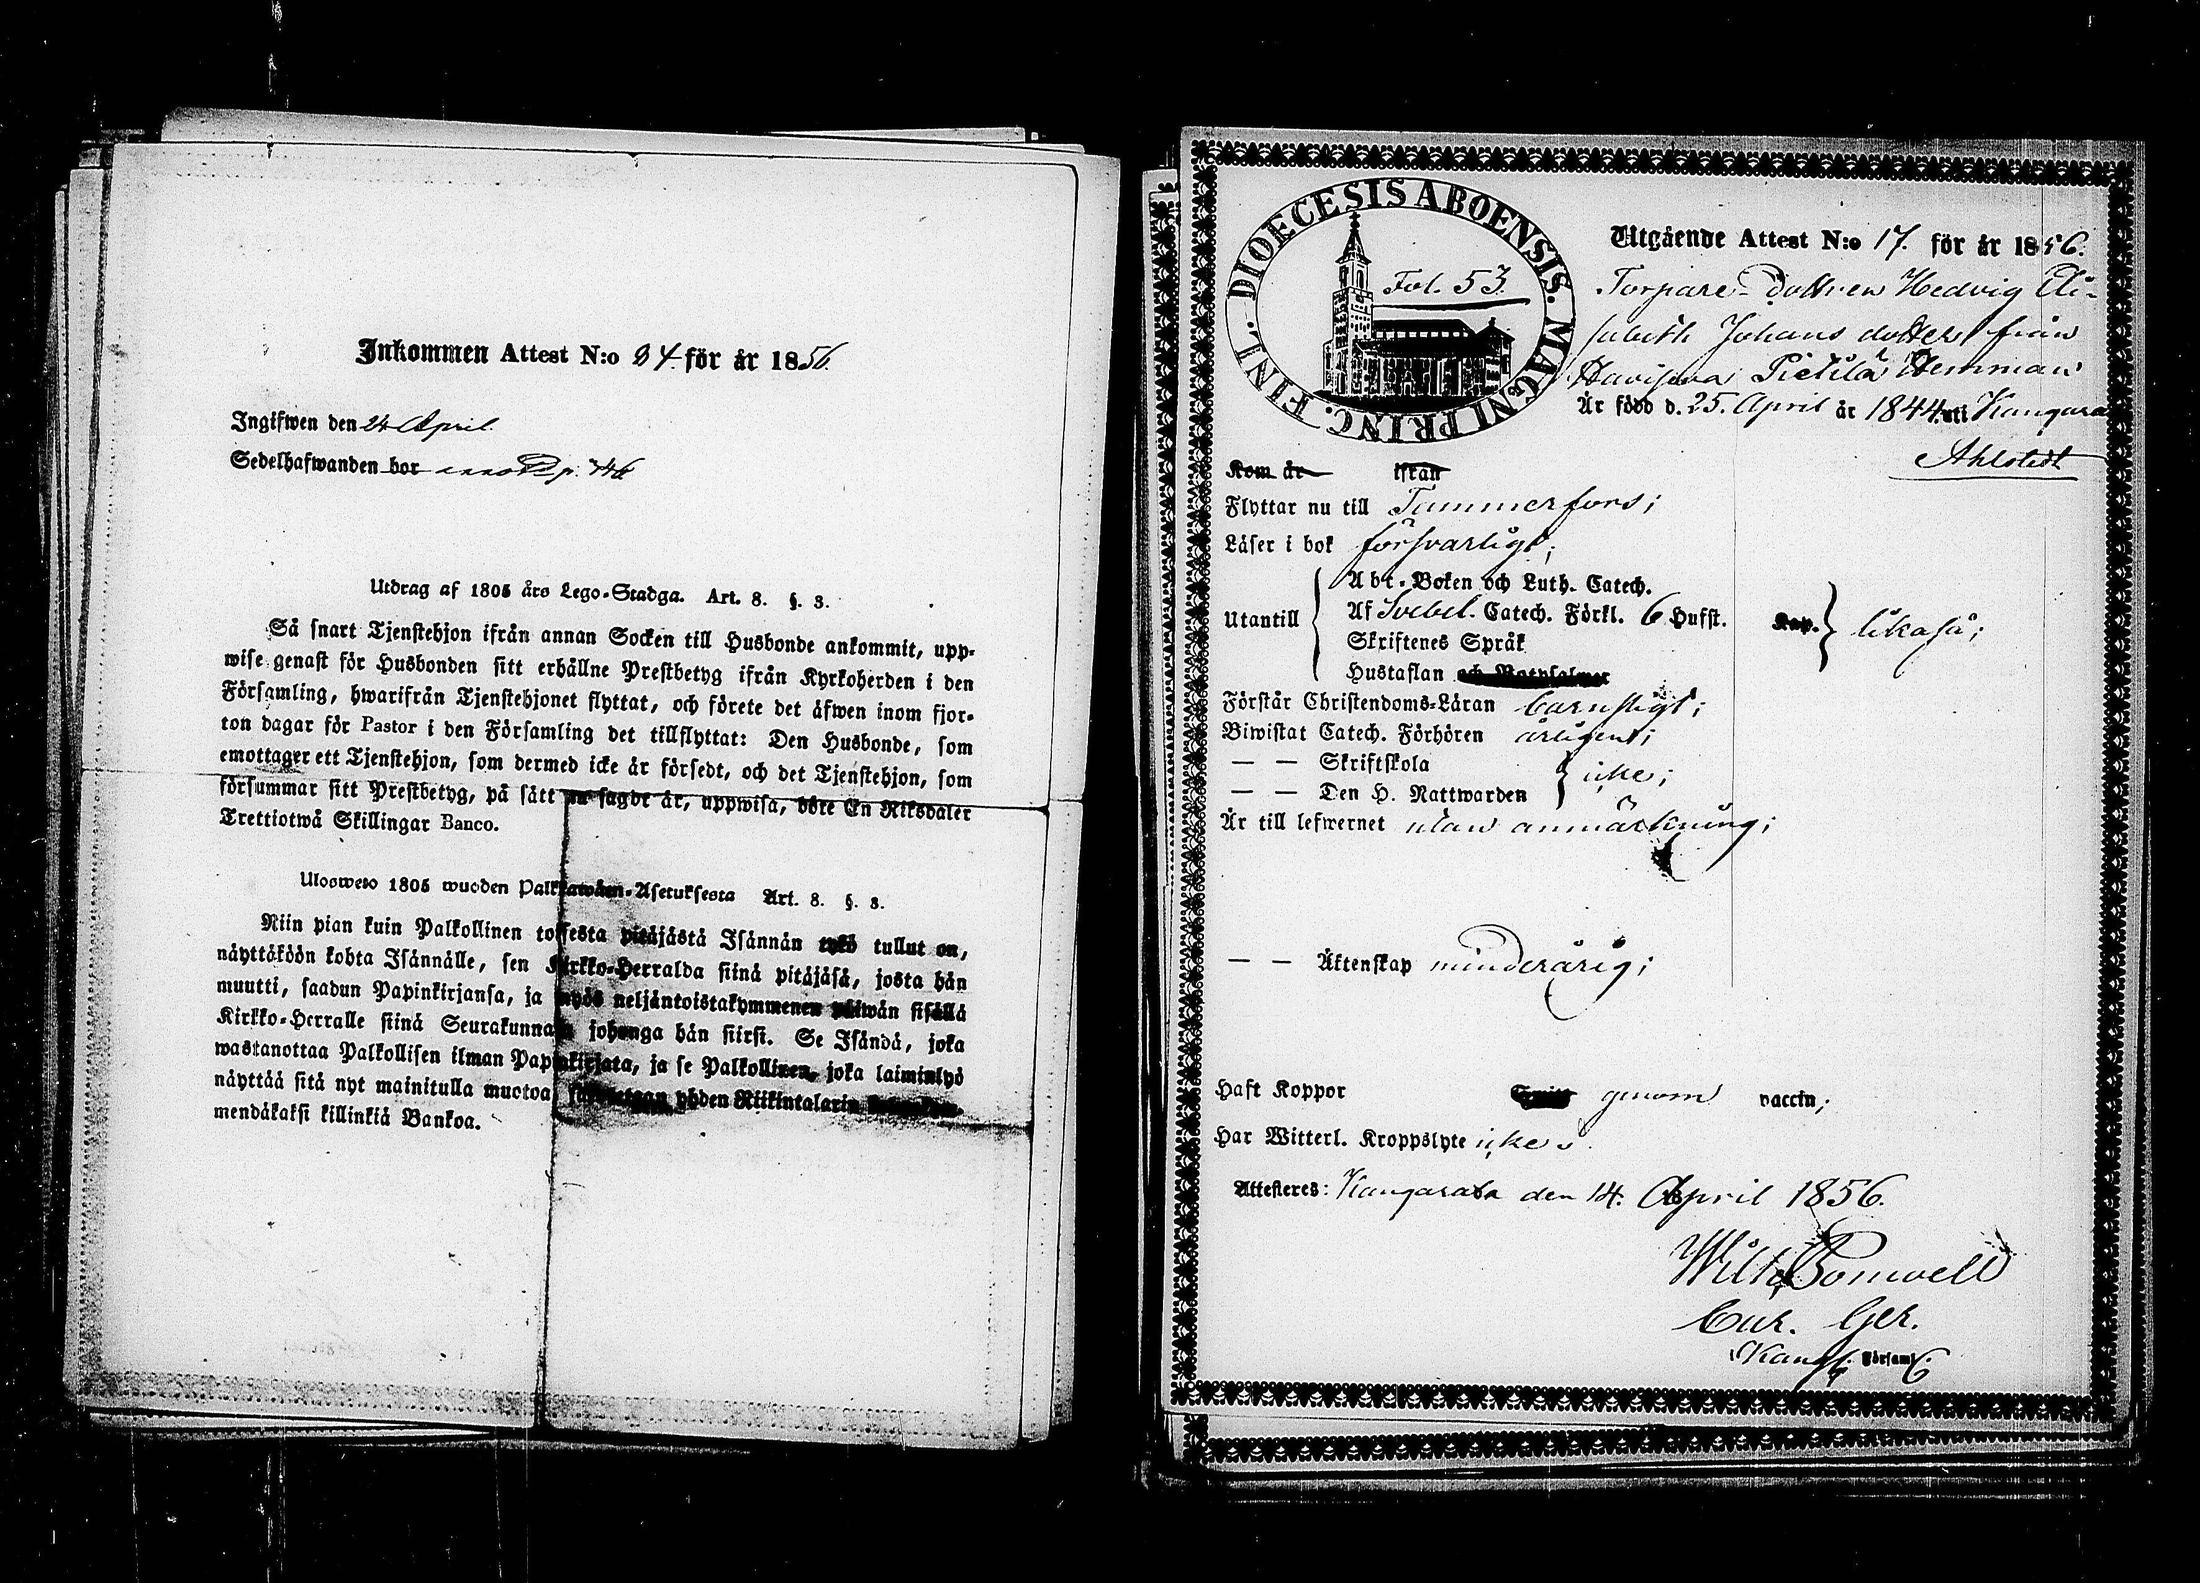 Inkommen Attest N:o 94. för år 1856.
Ingifwen den 24 April.
Sedelhafwanden bor
Utdrag af 1805 års Lego-Stadga. Art. 8. §. 3.
Så snart Tjenstehjon ifrån annan Socken till Husbonde ankommit, upp-
wise genast för Husbonden sitt erhållne Prestbetyg ifrån Kyrkoherden i den
Församling, hwarifrån Tjenstehjonet flyttat, och förete det äfwen inom fjor-
ton dagar för Pastor i den Församling det tillflyttat: Den Husbonde, som
emottager ett Tjenstehjon, som dermed icke är försedt, och det Tjenstehjon, som
försummar sitt Prestbetyg, på sätt nu sagdt är, uppwisa, böte En Riksdaler
Trettiotwå Skillingar Banco.
Ulosweto 1805 wuoden Palkkawäen-Asetuksesta Art. 8. §. 3.
Niin pian kuin Palkollinen toisesta pitäjästä Isännän tykö tullut on,
näyttäköön kohta Isännälle, sen Kirkko-Herralda siinä pitäjäsä, josta hän
muutti, saadun Papinkirjansa, ja myös neljäntoistakymmenen päiwän sisällä
Kirkko-Herralle siinä Seurakunnasa johonga hän siirsi. Se Isändä, joka
wastanottaa Palkollisen ilman Papinkirjata, ja se Palkollinen, joka laiminlyö
näyttää sitä nyt mainitulla muotoa, yhden Riikintalarin
mendäkaksi killinkiä Bankoa.
DIOECESIS ABOENSIS. MAGNI PRINC. FINL.
Fol. 53.
Utgående Attest N:o 17. för år 1856.
Torpare-Dottren Hedvig Eli-
sabeth Johans dotter från
Haviseva Pietilä Hemman
Är född d. 25. April år 1844 uti Kangasa
Ahlstedt
Kom år ifrån
Flyttar nu till Tammerfors;
Läser i bok försvarligt;
Utantill
Abc-Boken och Luth. Catech.
Af Svebel. Catech. Förkl. 6 Hufst. Kap. likaså;
Skriftenes Språk
Hustaflan och Botpsalmer
Förstår Christendoms-Läran barnsligt;
Biwistat Catech. Förhören årligen;
— — Skriftskola
— — Den H. Nattwarden icke;
Är till lefwernet utan anmärkning;
— — Äktenskap minderårig;
Haft Koppor genom vaccin;
Har Witterl. Kroppslyte icke;
Attesteres: Kangasala den 14. April 1856.
Wilh. Bonwell
Cur. Ger.
Kang. Församl.